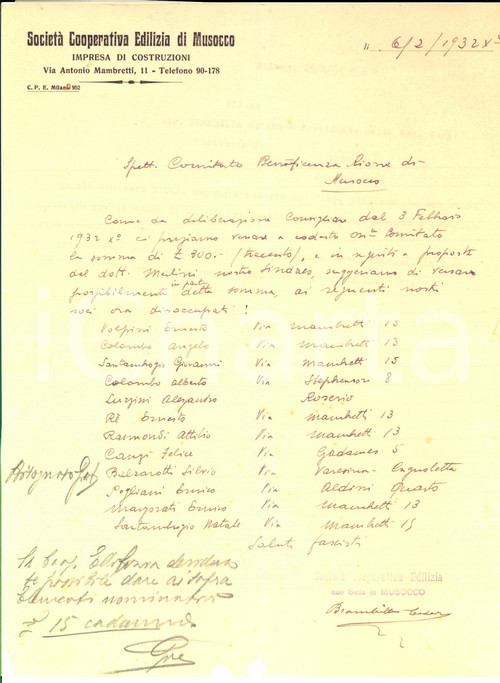 Società Cooperativa Edilizia di Musocco
IMPRESA DI COSTRUZIONI
Via Antonio Mambretti, 11 - Telefono 90-178
C. P. E. Milano 952
6/2/1932 Xº
Spett. Comitato Beneficenza Rione di
Musocco
Come da deliberazione Consigliare del 3 Febbraio
1932 Xº ci pregiamo versare a codesto On. Comitato
la somma di £ 300.- (trecento), e in seguito a proposta
del dott. nostro Sindaco, suggeriamo di versare
possibilmente in parte detta somma, ai seguenti nostri
soci ora disoccupati:
Volpini Ernesto Via Mambretti 15
Colombo Angelo Via Mambretti 13
Santambrogio Giovanni Via Mambretti 15
Colombo Alberto Via Stephenson 8
Alessandro Roserio
Rè Ernesto Via Mambretti 13
Raimondi Attilio Via Mambretti 13
Cauzi Felice Via Gadames 5
Balzarotti Silvio Via
Pogliani Enrico Via Aldini Quarto
Enrico Via Mambretti 13
Santambrogio Natale Via Mambretti 15
Saluti fascisti
Società Cooperativa Edilizia
con Sede in MUSOCCO
Brambilla
te possibile dare ai sopra
elementi nominativi
£ 15 cadauno.